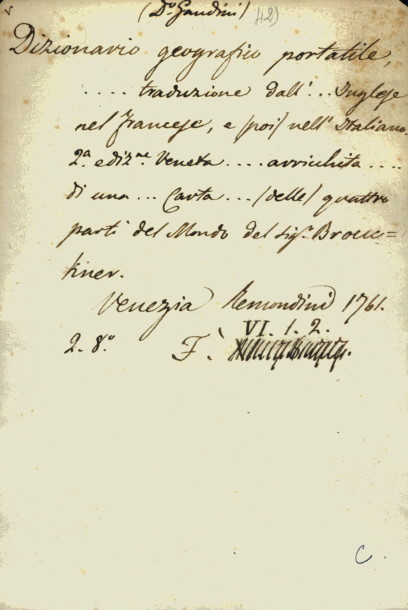 (Dr. Gandini) 42)
Dizionario geografico portatile,
.... traduzione dall'... Inglese
nel Francese, e (poi) nell'Italiano.
2a. ediz.ne Veneta .... arricchita ....
di una ... Carta ... (delle) quattro
parti del Mondo del Sigr. Brouc=
kner.
Venezia Remondini 1761.
VI. 1. 2.
2. 8.° F.
C.